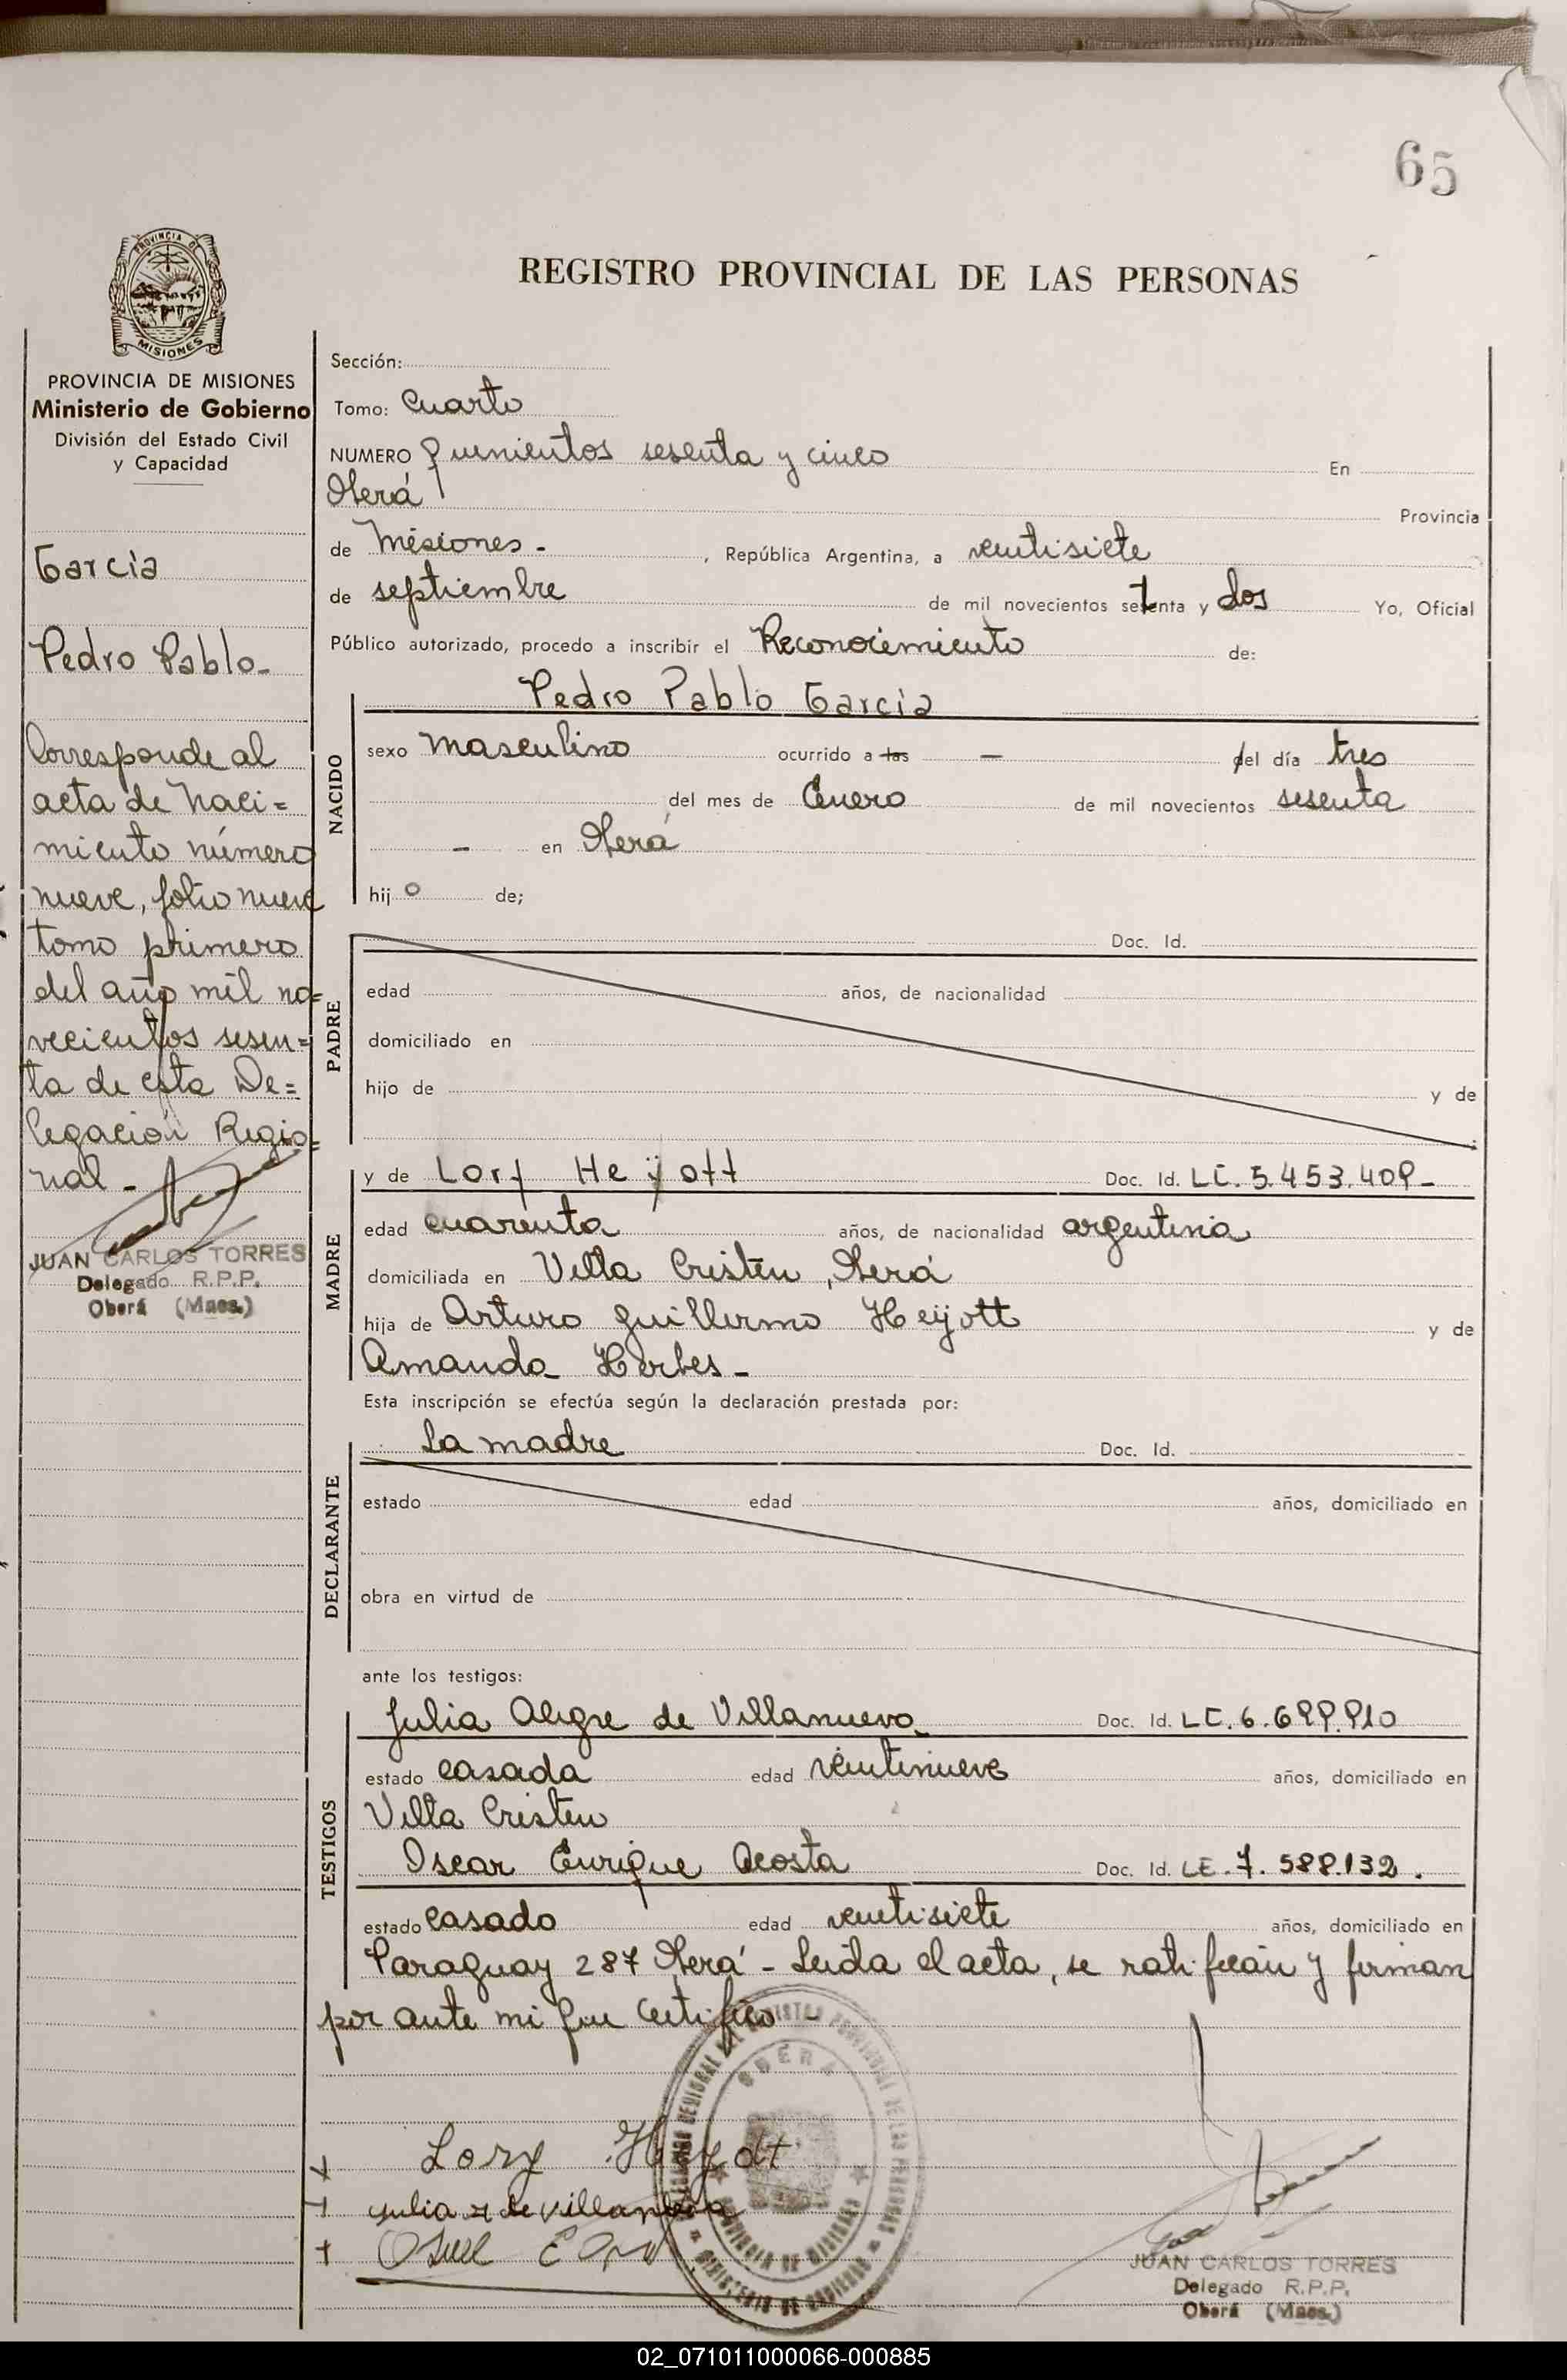 65
PROVINCIA DE
MISIONES
PROVINCIA DE MISIONES
Ministerio de Gobierno
División del Estado Civil
y Capacidad
García
Pedro Pablo-
Corresponde al
acta de Naci=
miento número
nueve, folio nueve
tomo primero
del año mil no=
vecientos sesen=
ta de esta De=
legación Regio=
nal -
JUAN CARLOS TORRES
Delegado R.P.P.
Oberá (Mnes.)
REGISTRO PROVINCIAL DE LAS PERSONAS
Sección:
Tomo: Cuarto
NUMERO quinientos sesenta y cinco En
Oberá Provincia
de Misiones - , República Argentina, a veintisiete
de septiembre de mil novecientos setenta y dos Yo, Oficial
Público autorizado, procedo a inscribir el Reconocimiento de:
Pedro Pablo García
NACIDO
sexo masculino ocurrido a las — del día tres
del mes de Enero de mil novecientos sesenta
- en Oberá
hijo de;
PADRE
Doc. Id.
edad años, de nacionalidad
domiciliado en
hijo de y de
MADRE
y de Lory Heÿott Doc. Id. LC. 5.453.409-
edad cuarenta años, de nacionalidad argentina
domiciliada en Villa Cristen, Oberá
hija de Arturo Guillermo Heijott y de
Amanda Herbes -
Esta inscripción se efectúa según la declaración prestada por:
DECLARANTE
La madre Doc. Id.
estado edad años, domiciliado en
obra en virtud de
ante los testigos:
TESTIGOS
Julia Alegre de Villanueva Doc. Id. LC. 6.699.910
estado casada edad veintinueve años, domiciliado en
Villa Cristen
Oscar Enrique Acosta Doc. Id. LE. 7.588.132.
estado casado edad veintisiete años, domiciliado en
Paraguay 287 Oberá - Leída el acta, se ratifican y firman
por ante mi que certifico -
OBERA
Lory Heydt
Julia A de Villanueva
JUAN CARLOS TORRES
Delegado R.P.P.
Oberá (Mnes.)
02_071011000066-000885